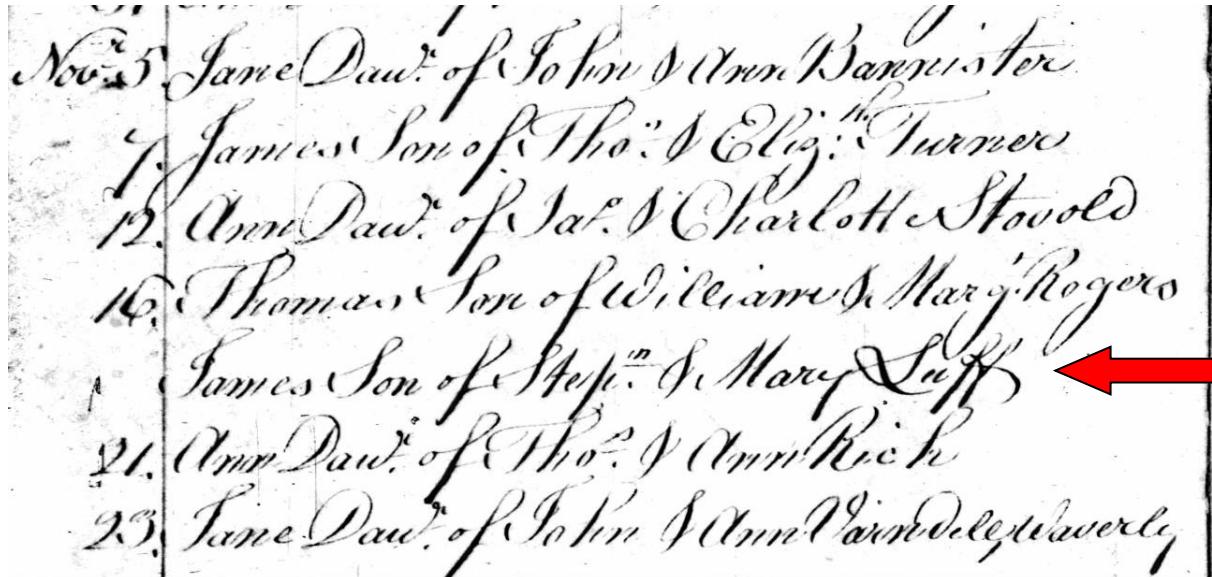 Novr. 5. Jane Dawr. of John & Ann Bannister
7. James Son of Thos. & Elizh. Turner
12. Ann Dawr. of Jas. & Charlotte Stovold
16. Thomas Son of William & Margt. Rogers
James Son of Stepn. & Mary Luff
21. Ann Dawr. of Thos. & Ann Rich
23. Jane Dawr. of John & Ann Varndell, Waverly